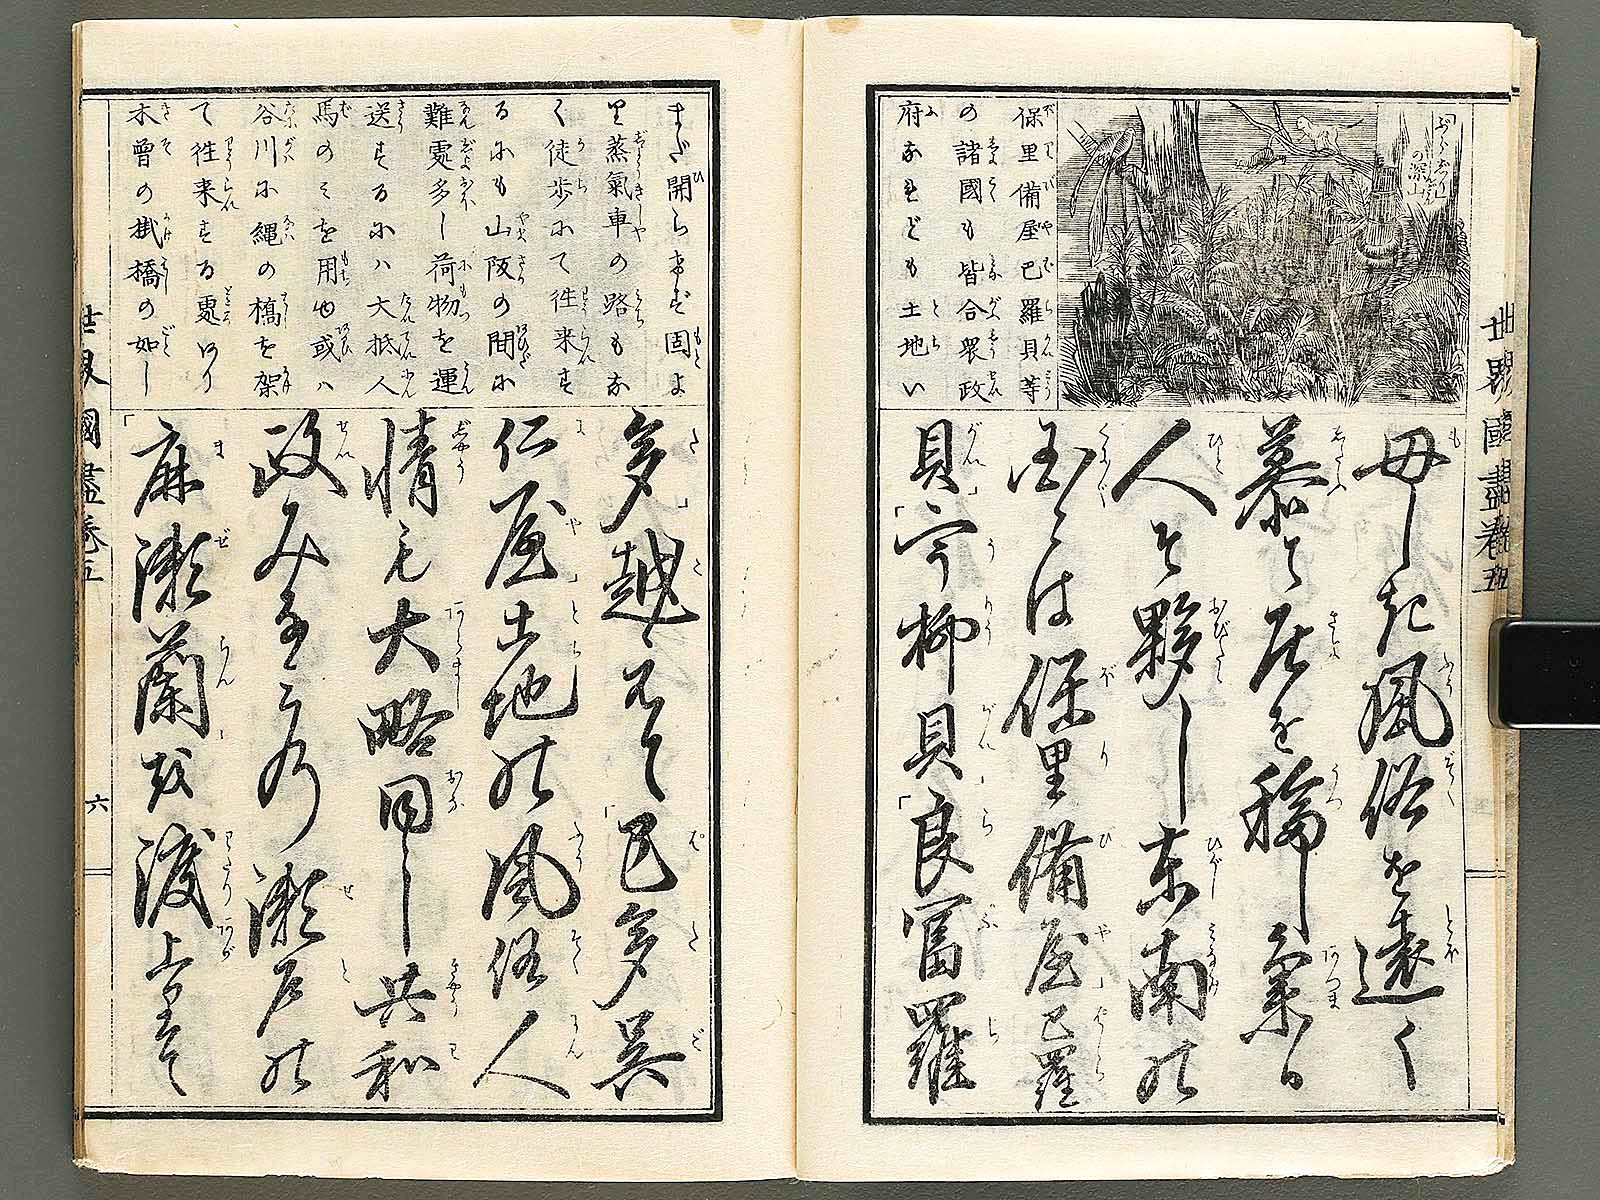 世界國盡卷五
保里備屋巴羅貝等
の諸國も皆合衆政
府なれども土地い
毋しき風俗を遠く
慕て居を移し集る
人ぞ夥し東南の
国々は保里備屋巴羅
貝宇柳貝良冨羅
まだ開らけず固よ
り蒸氣車の路もな
く徒歩にて往来す
るにも山阪の間に
難處多し荷物を運
送するにハ大抵人
馬のミを用ゆ或ハ
谷川に縄の橋を架
て往来する處あり
木曾の掛橋の如し
多越えて巴多呉
仁屋土地の風俗人
情も大略同し共和
政みなみの瀬戸の
麻瀬蘭を渡上りて
世界國盡卷五
六